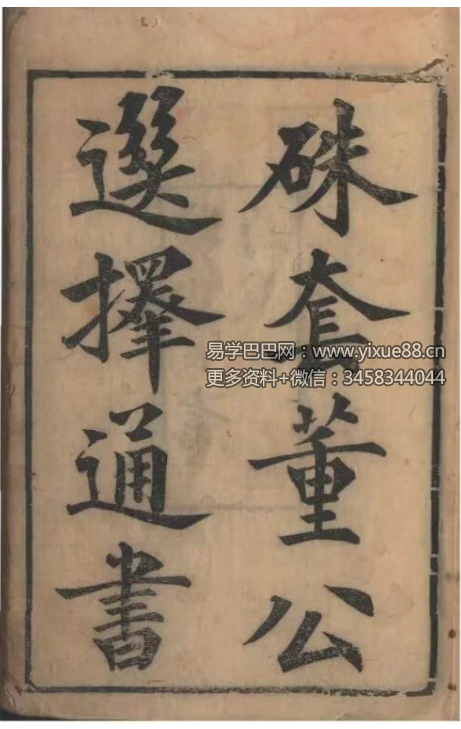 硃套董公
選擇通書
易学巴巴网：www.yixue88.cn
更多资料+微信：3458344044